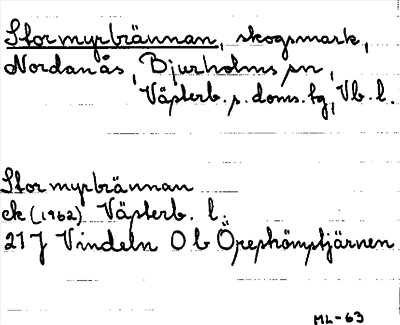 Stormyrbrännan, skogsmark,
Nordanås, Bjurholms sn,
Västerb. s. doms. fg, Vb. l.
Stormyrbrännan
ek (1962) Västerb. l.
21 J Vindeln 0 b Örepskömpstjärnen
ML-63